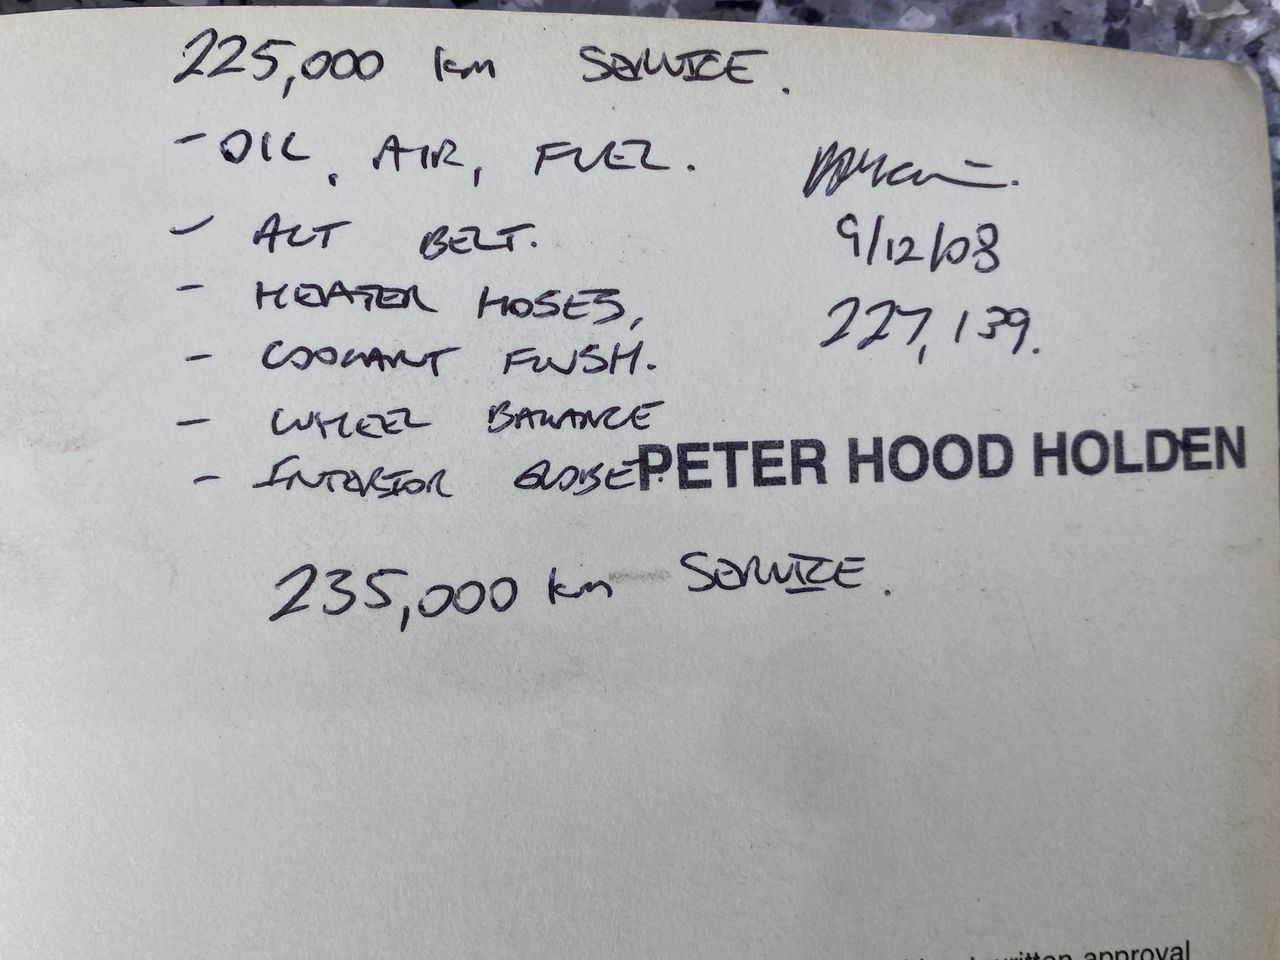 225,000 km SERVICE.
- OIL, AIR, FUEL.
- ALT BELT.
9/12/08
- HEATER HOSES,
227,139.
- COOLANT FLUSH.
- WHEEL BALANCE
PETER HOOD HOLDEN
- INTERIOR GLOBE.
235,000 km SERVICE.
written approval